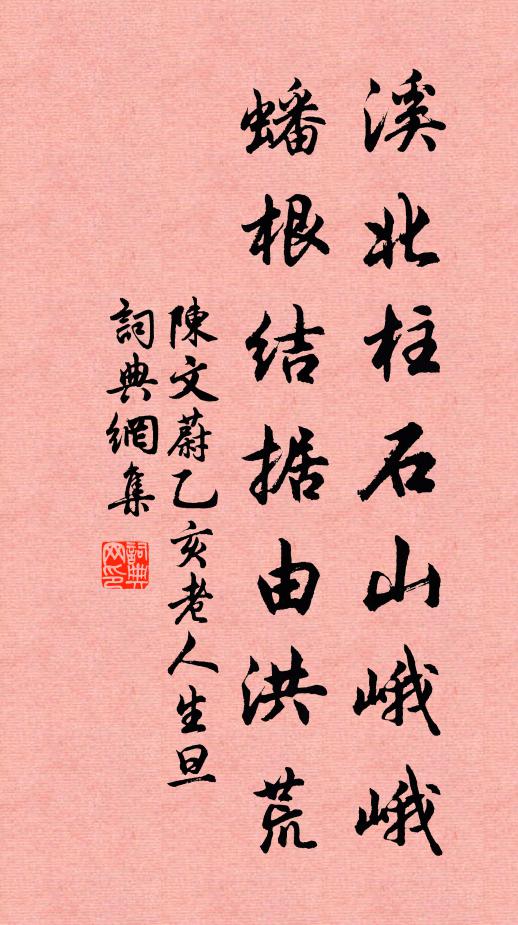 溪北柱石山峨峨
蟠根结据由洪荒
陳文蔚乙亥老人生旦
詞典網集
詞典網印